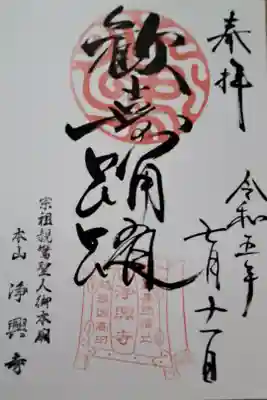 奉拝
令和五年
七月十一日
歓喜踊躍
宗祖親鸞聖人御本廟
本山 浄興寺
浄興寺